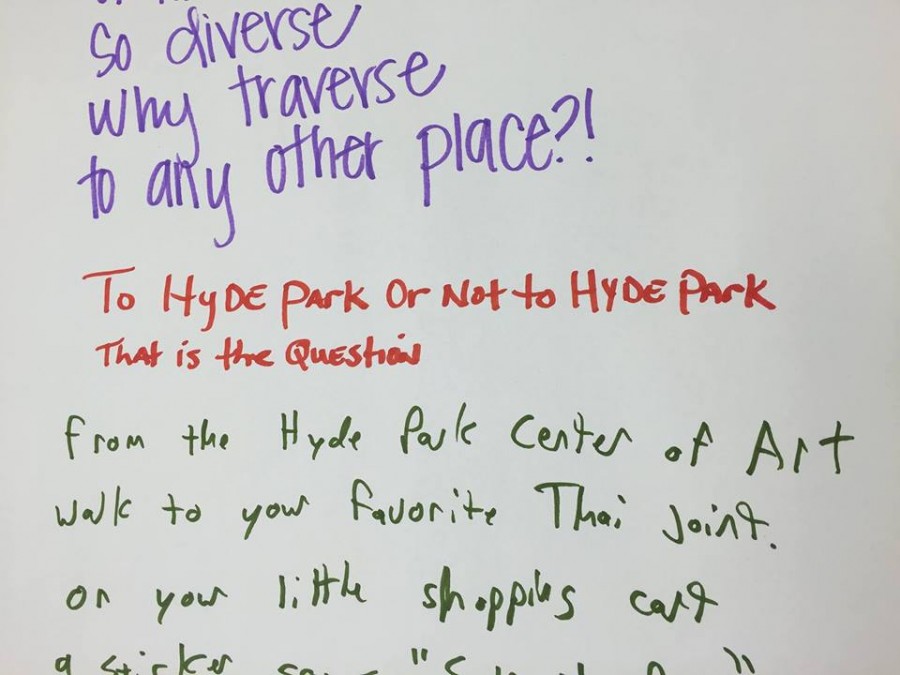 So diverse
why traverse
to any other place?!
To HyDE Park Or Not to HyDE Park
That is the Question
from the Hyde Park Center of Art
walk to your favorite Thai Joint.
on your little shopping cart
a sticker